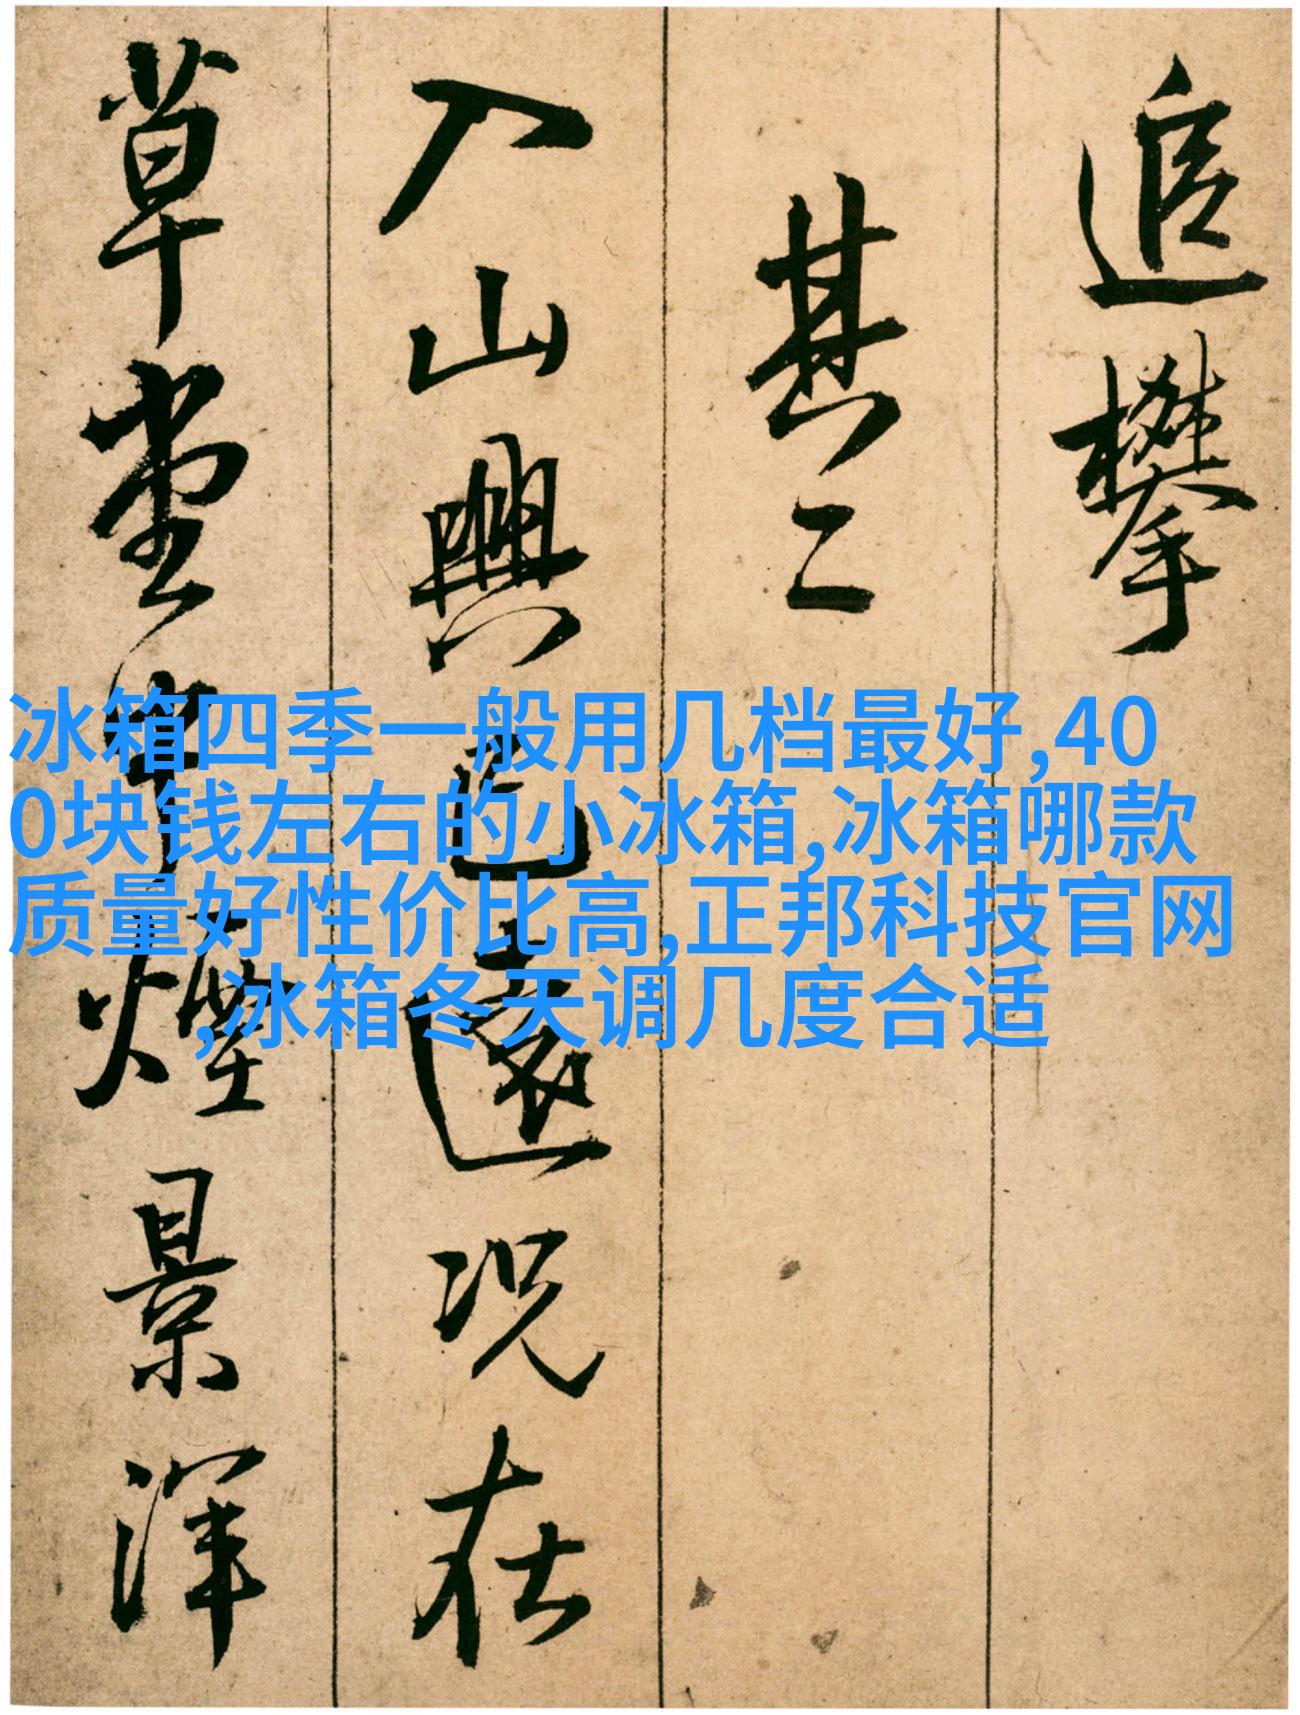 追攀
其二
入山興已遠況在
草堂煙景渾
冰箱四季一般用几档最好,40
0块钱左右的小冰箱,冰箱哪款
质量好性价比高,正邦科技官网
,冰箱冬天调几度合适